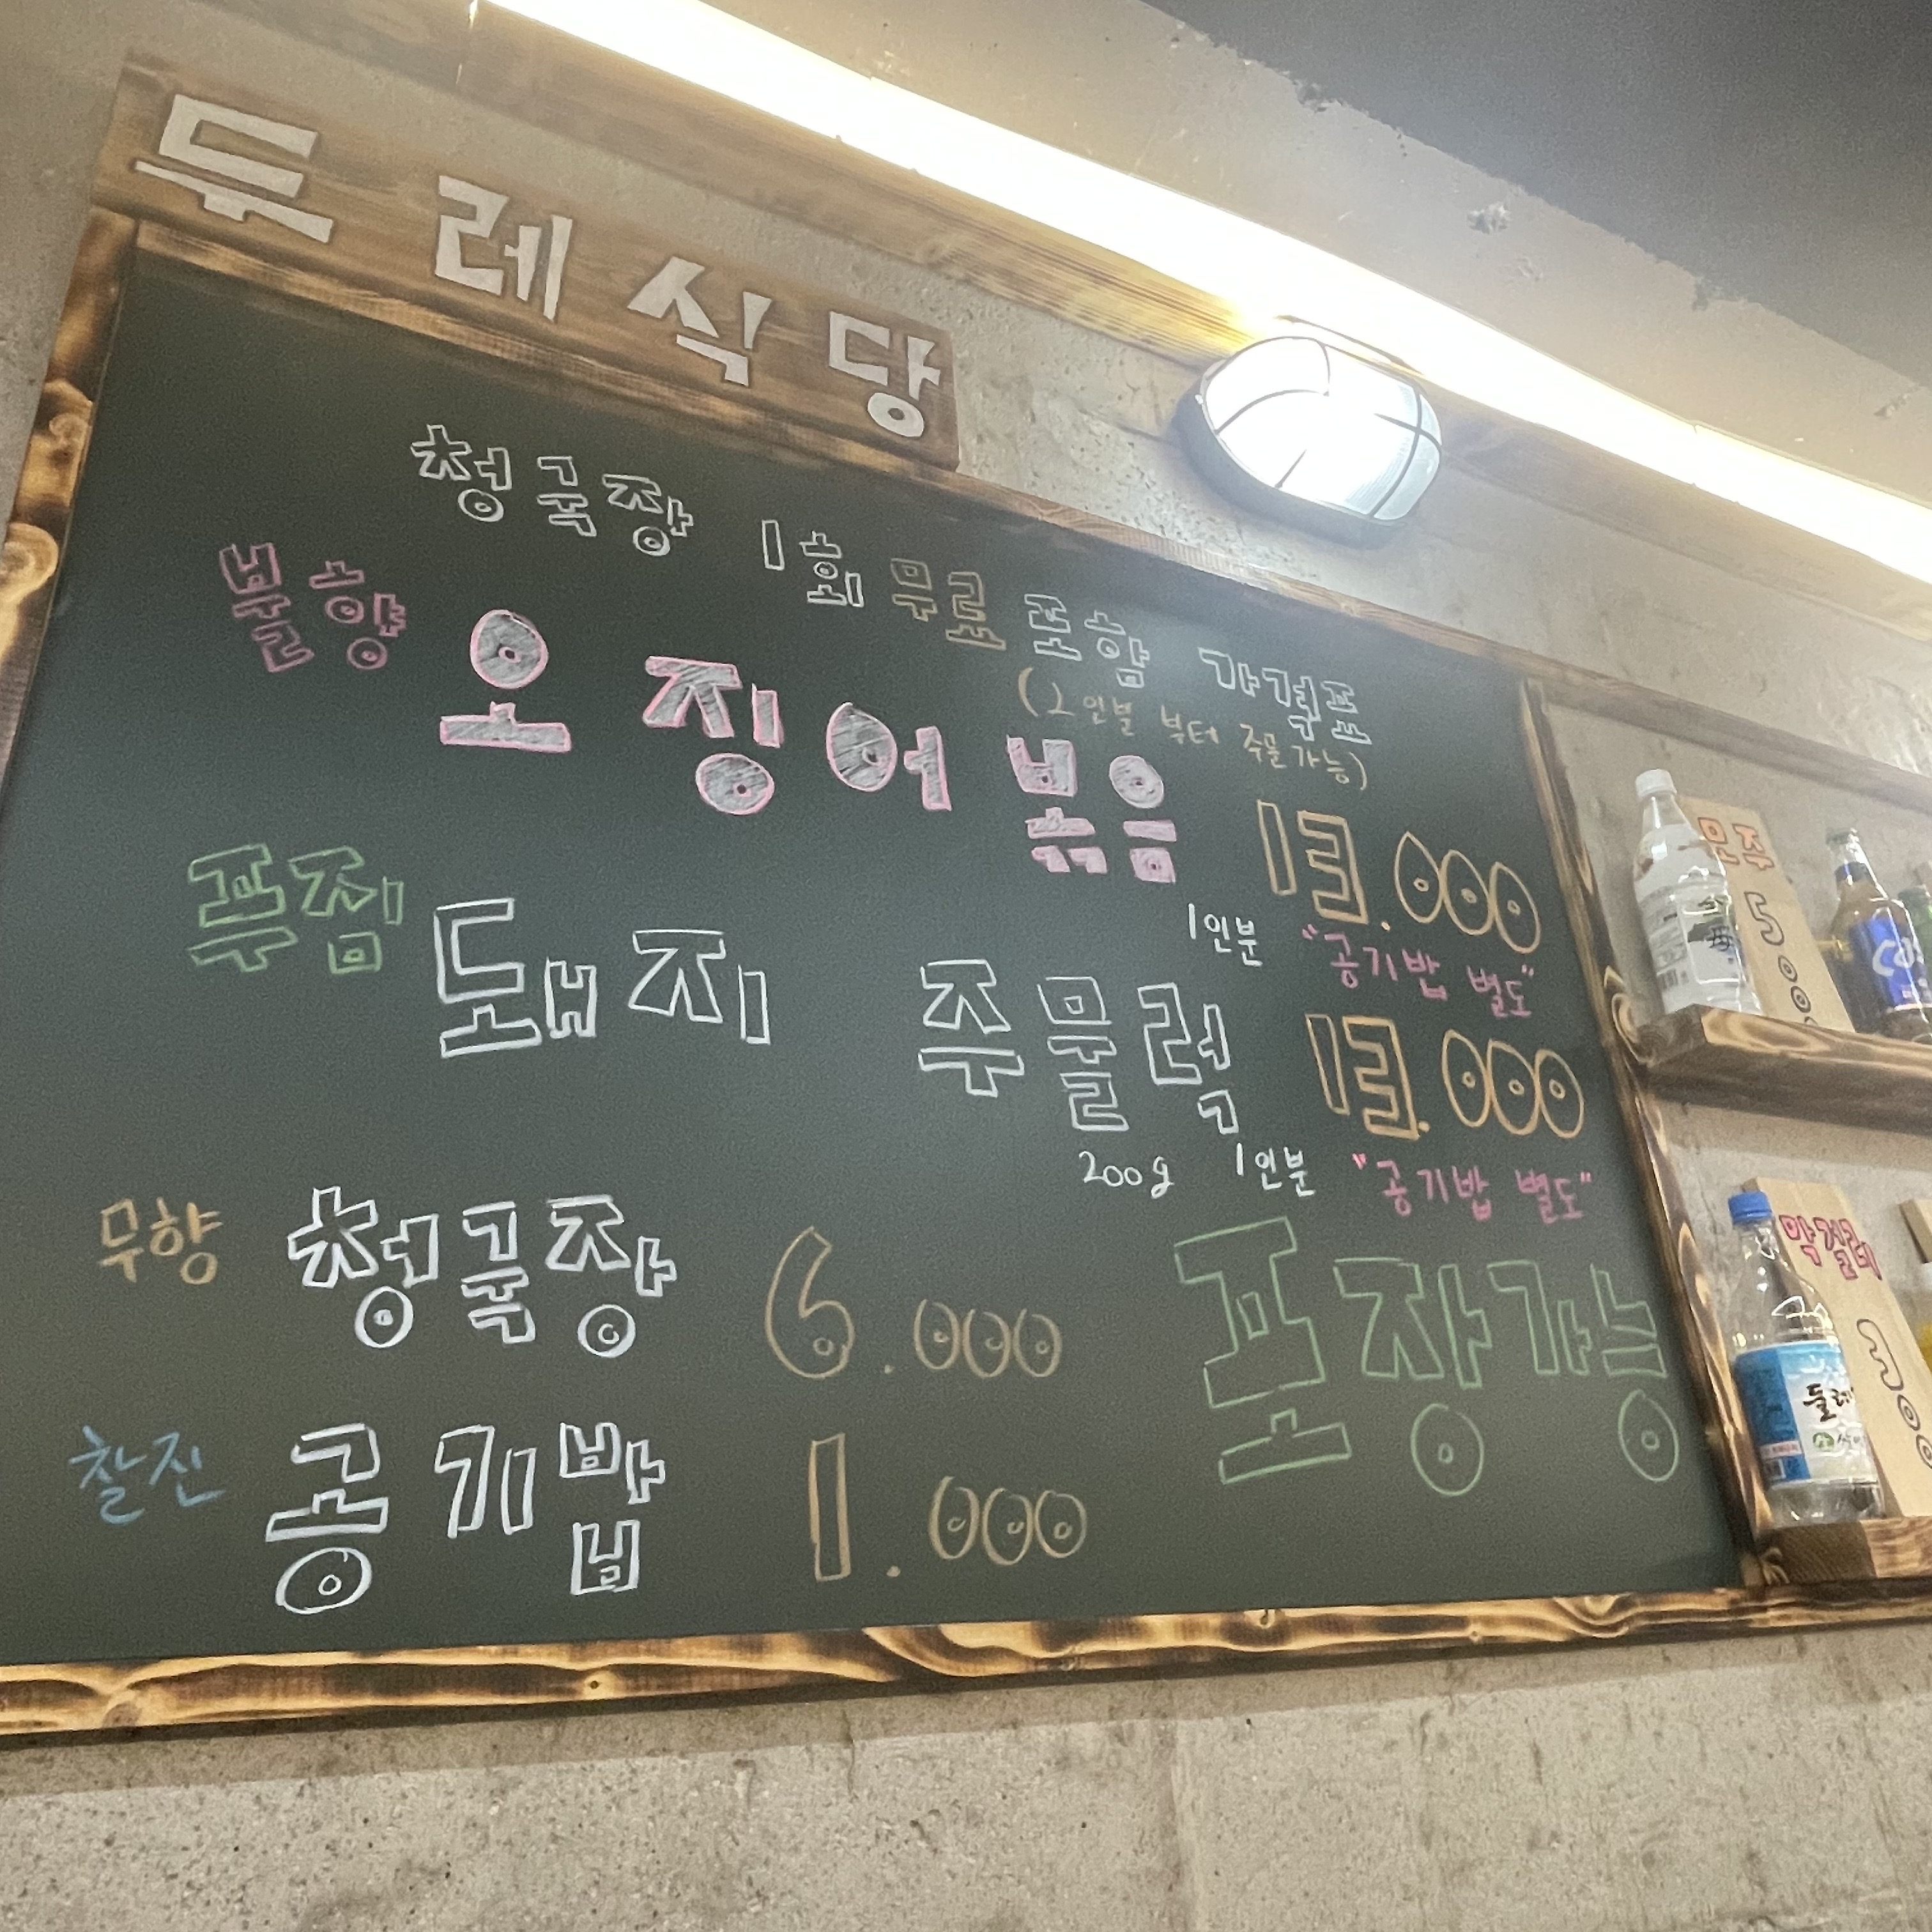 두레식당
청국장 1회 무료 포함 가격표
(2인분 부터 주문가능)
불향 오징어볶음 13.000
1인분 "공기밥 별도"
푸짐 돼지 주물럭 13.000
200g 1인분 "공기밥 별도"
무향 청국장 6.000
포장가능
찰진 공기밥 1.000
모주
5000
막걸리